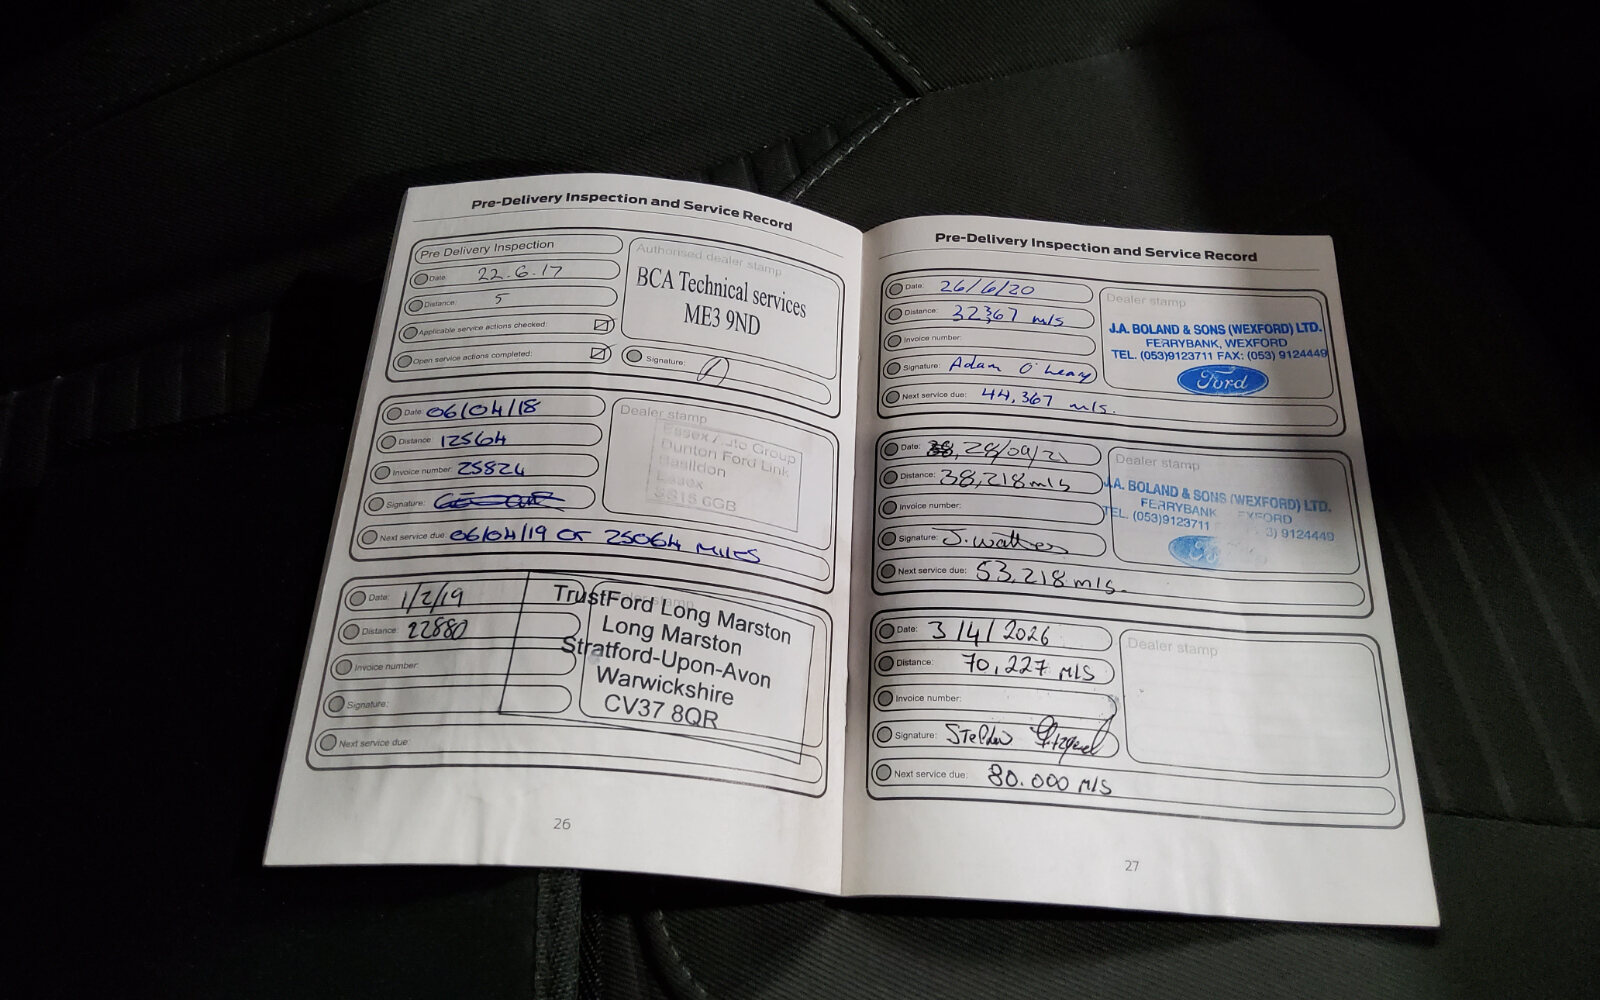 Pre-Delivery Inspection and Service Record
Pre Delivery Inspection
Date: 22.6.17
Distance: 5
Applicable service actions checked:
Open service actions completed:
Authorised dealer stamp
BCA Technical services
ME3 9ND
Signature:
Date: 06/04/18
Distance: 12564
Invoice number: 25824
Signature:
Next service due: 06/04/19 or 25064 MILES
Dealer stamp
Essex Auto Group
Dunton Ford Link
Basildon
Essex
SS15 6GB
Date: 1/2/19
Distance: 22880
Invoice number:
Signature:
Next service due:
Dealer stamp
TrustFord Long Marston
Long Marston
Stratford-Upon-Avon
Warwickshire
CV37 8QR
26
Pre-Delivery Inspection and Service Record
Date: 26/6/20
Distance: 32367 mls
Invoice number:
Signature: Adam O'Leary
Next service due: 44,367 mls.
Dealer stamp
J.A. BOLAND & SONS (WEXFORD) LTD.
FERRYBANK, WEXFORD
TEL. (053)9123711 FAX: (053) 9124449
Ford
Date: 28/09/21
Distance: 38,218 mls
Invoice number:
Signature: J. Walker
Next service due: 53,218 mls.
Dealer stamp
J.A. BOLAND & SONS (WEXFORD) LTD.
FERRYBANK EXFORD
TEL. (053)9123711 3) 9124449
Date: 3/4/2026
Distance: 70,227 MLS
Invoice number:
Signature: Stephen
Next service due: 80.000 MLS
Dealer stamp
27